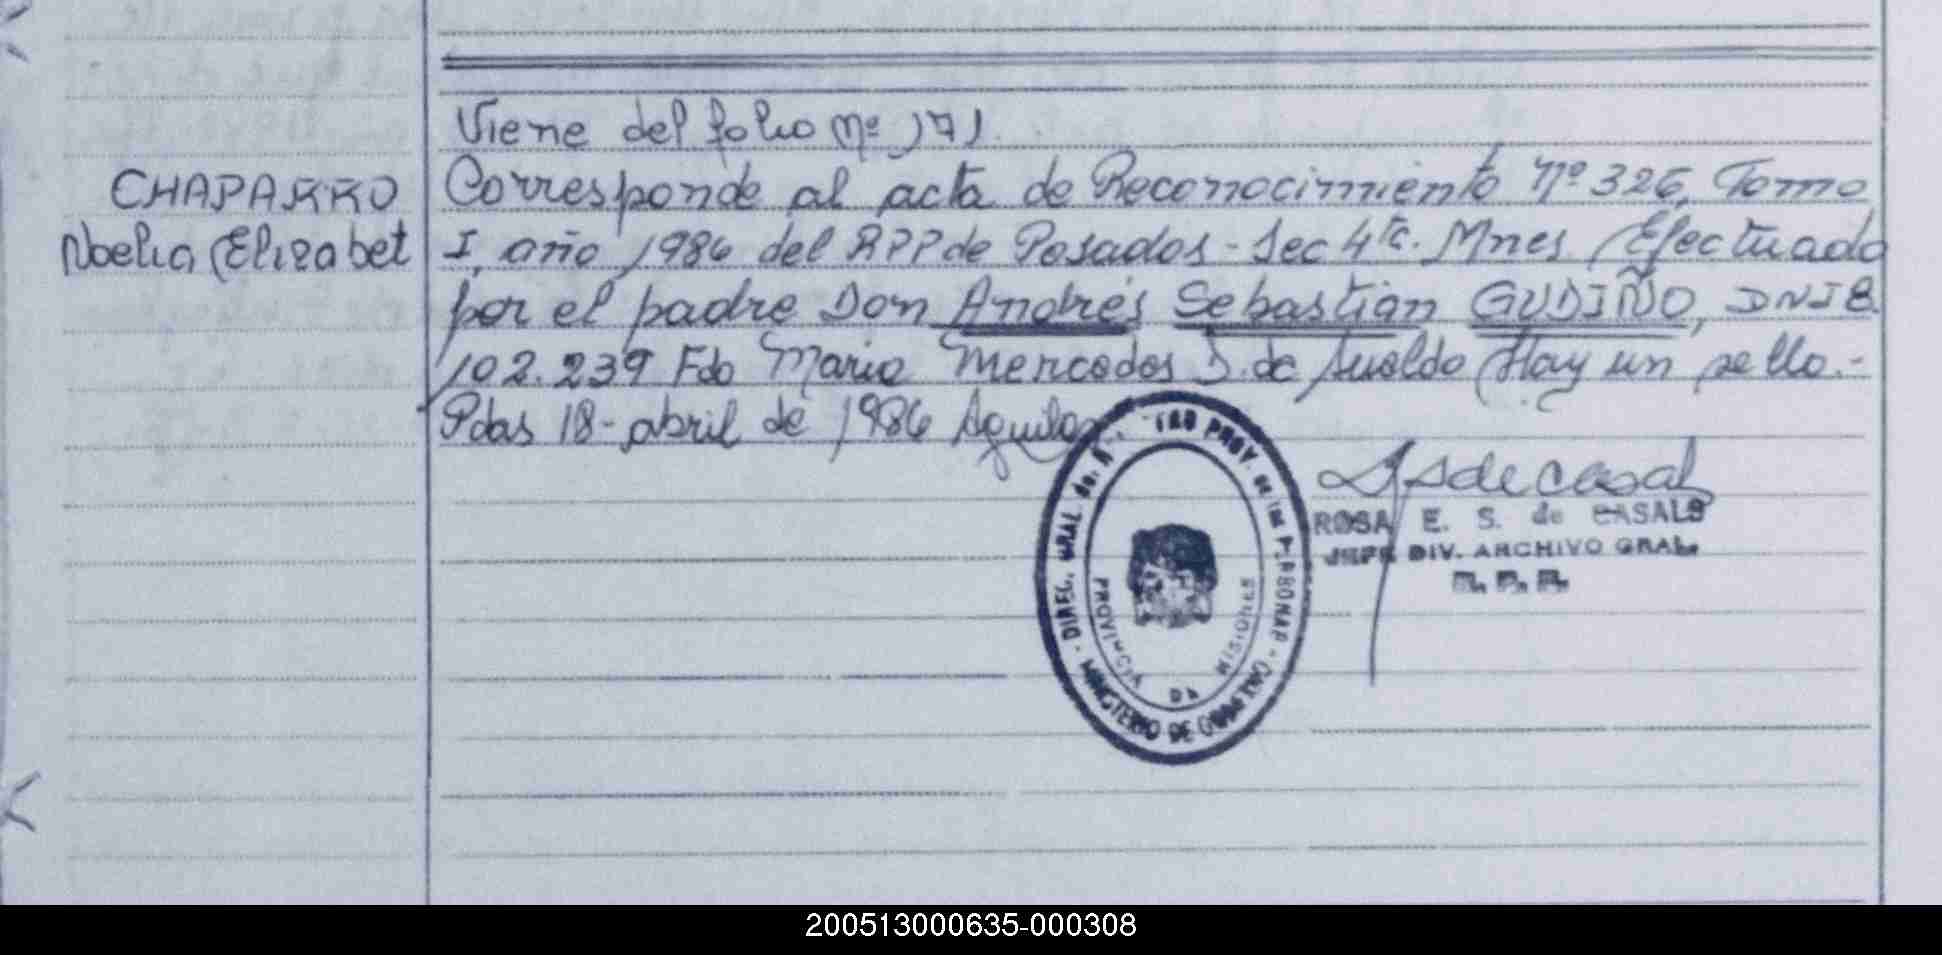 Viene del folio Nº 171.
CHAPARRO
Noelia Elizabet
Corresponde al acta de Reconocimiento Nº 326, Tomo
I, año 1986 del RPP de Posadas - Sec 4ta. Mnes. Efectuado
por el padre Don Andrés Sebastián GUDIÑO, DNI 8.
102.239 Fdo Maria Mercedes S. de Hay un sello.-
Pdas 18 - abril de 1986 Aguilar
DIREC. GRAL. del PROV. de las PERSONAS - MINISTERIO DE GOBIERNO
PROVINCIA DE MISIONES
S de Casals
ROSA E. S. de CASALS
JEFE DIV. ARCHIVO GRAL.
R. P. P.
200513000635-000308